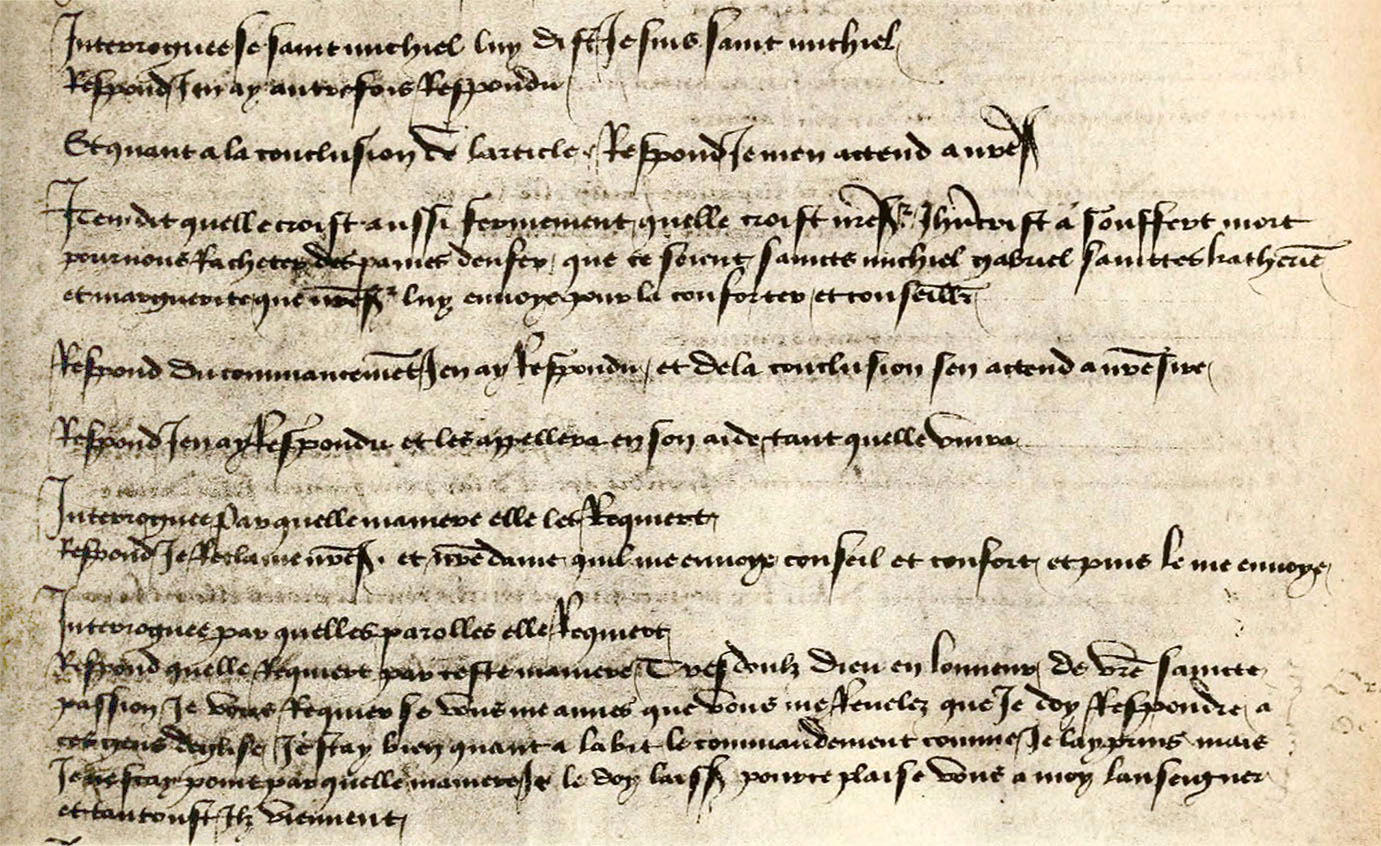 Interroguee se saint michiel luy dist Je suis saint michiel
Respond Jen ay autresfois Respondu
Et quant a la conclusion de larticle Respond Je men actend a nre sr
Item dit quelle croist aussi fermement quelle croist nre sr Jhucrist a souffert mort
pour nous Racheter des paines denfer que ce soient saincts michiel gabriel sainctes katherie
et marguerite que nre sr luy envoye pour la conforter et conseillr
Respond du commancemet Jen ay Respondu et de la conclusion sen actend a nre sire
Respond Jen ay Respondu et les appellera en son aide tant quelle vivra
Interroguee par quelle maniere elle les Requiert
Respond Je Reclame nre sr et nre dame quil me envoye conseil et confort et puis le me envoye
Interroguee par quelles parolles elle Requiert
Respond quelle Requiert par ceste maniere Tres doulz dieu en lonneur de vre saincte
passion Je vous Requier se vous me aimes que vous me Revelez que Je doy Respondre a
ces gens deglise Je scay bien quant a labit le commandement comme Je lay prins mais
Je ne scay point par quelle maniere Je le doy laissr pour ce plaise vous a moy lanseigner
et tantoust Ilz viennent